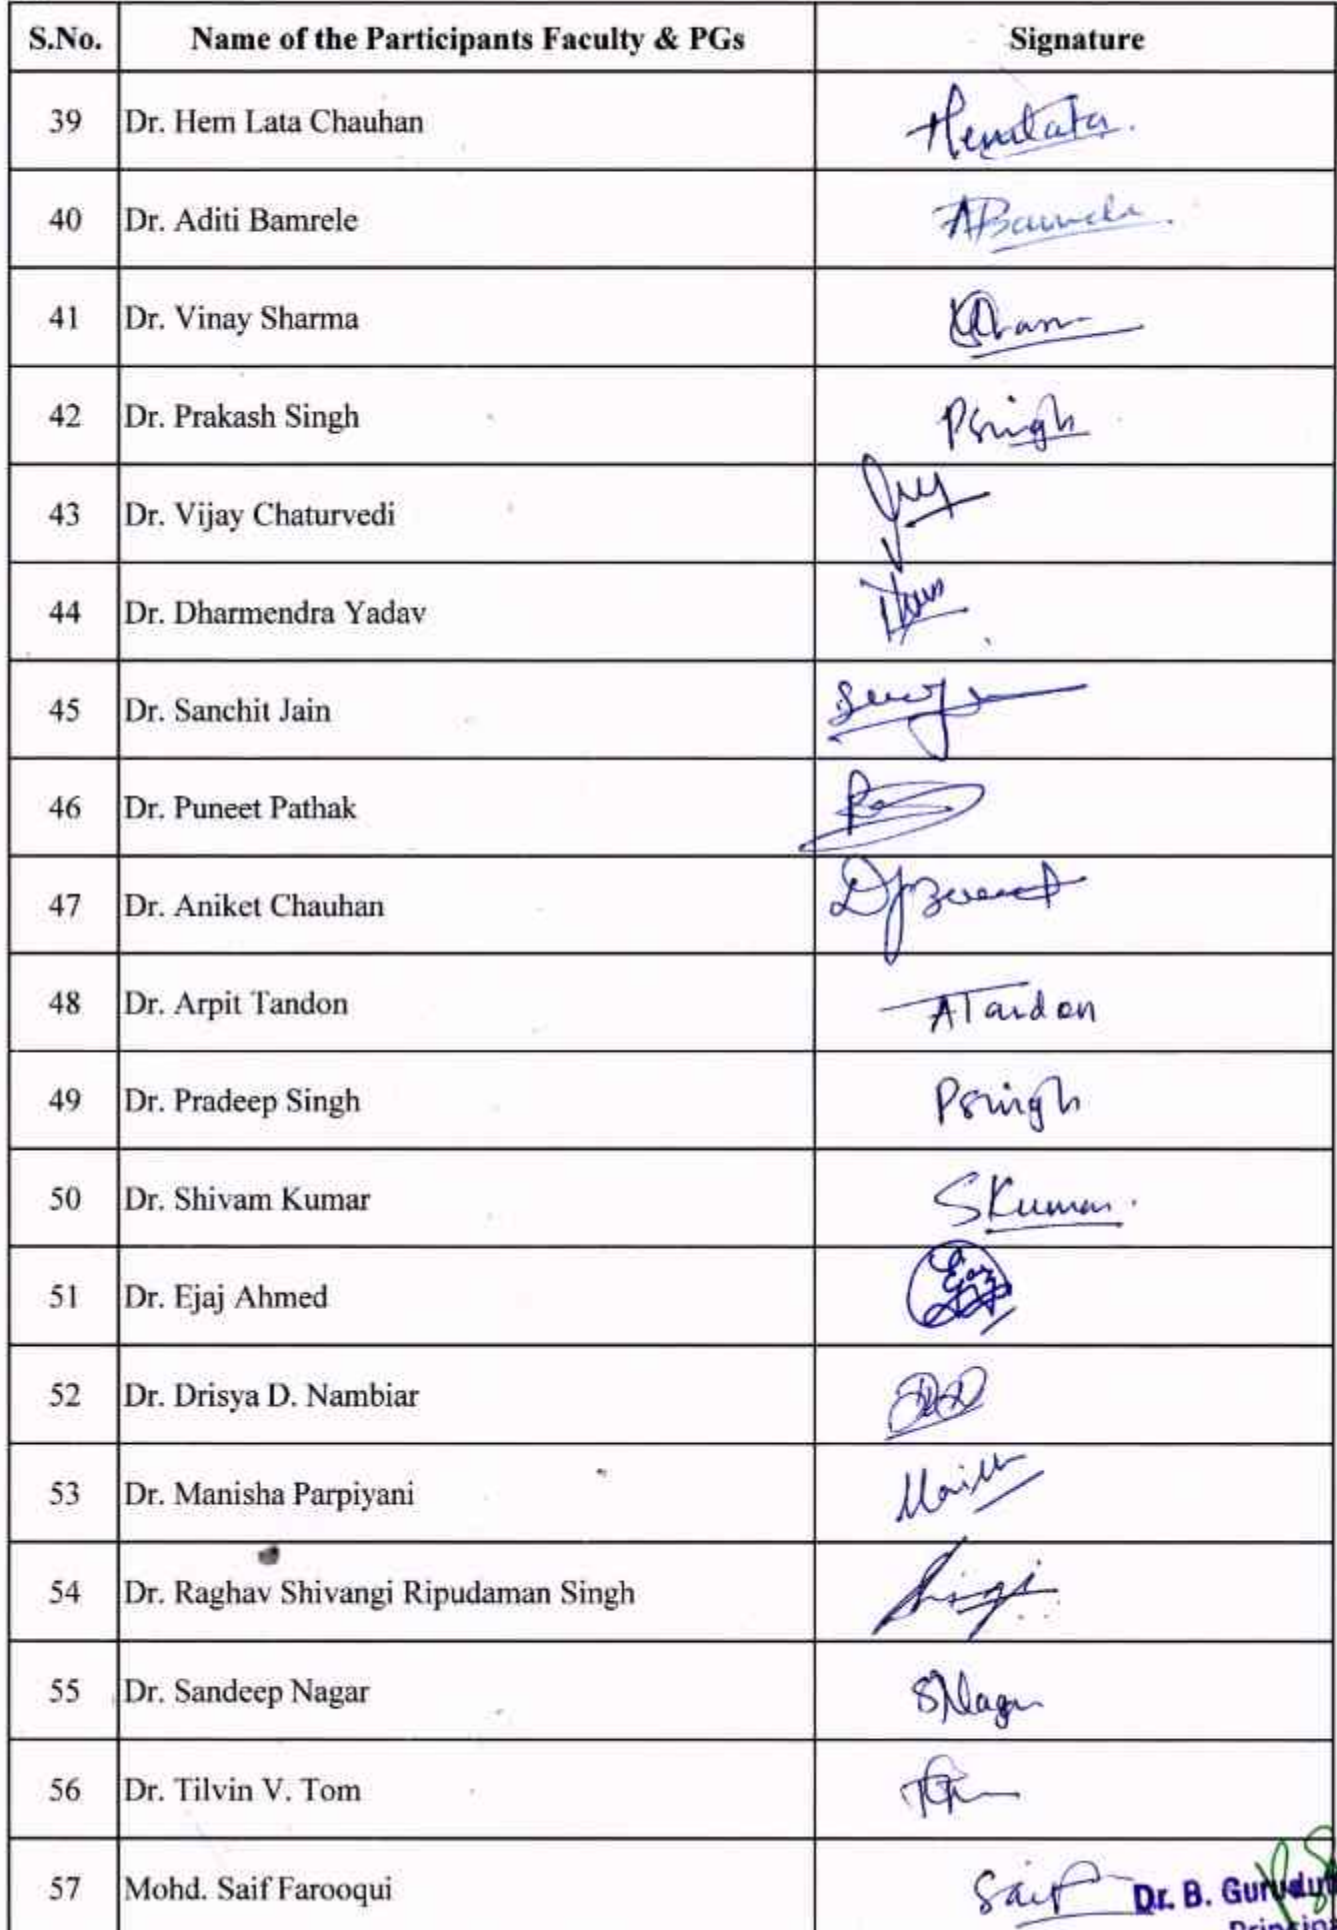 S.No. Name of the Participants Faculty & PGs Signature
39 Dr. Hem Lata Chauhan Hemlata.
40 Dr. Aditi Bamrele ABamrele
41 Dr. Vinay Sharma
42 Dr. Prakash Singh PSingh
43 Dr. Vijay Chaturvedi
44 Dr. Dharmendra Yadav
45 Dr. Sanchit Jain
46 Dr. Puneet Pathak
47 Dr. Aniket Chauhan
48 Dr. Arpit Tandon ATandon
49 Dr. Pradeep Singh PSingh
50 Dr. Shivam Kumar SKumar.
51 Dr. Ejaj Ahmed
52 Dr. Drisya D. Nambiar
53 Dr. Manisha Parpiyani
54 Dr. Raghav Shivangi Ripudaman Singh
55 Dr. Sandeep Nagar SNagar
56 Dr. Tilvin V. Tom
57 Mohd. Saif Farooqui Saif Dr. B.